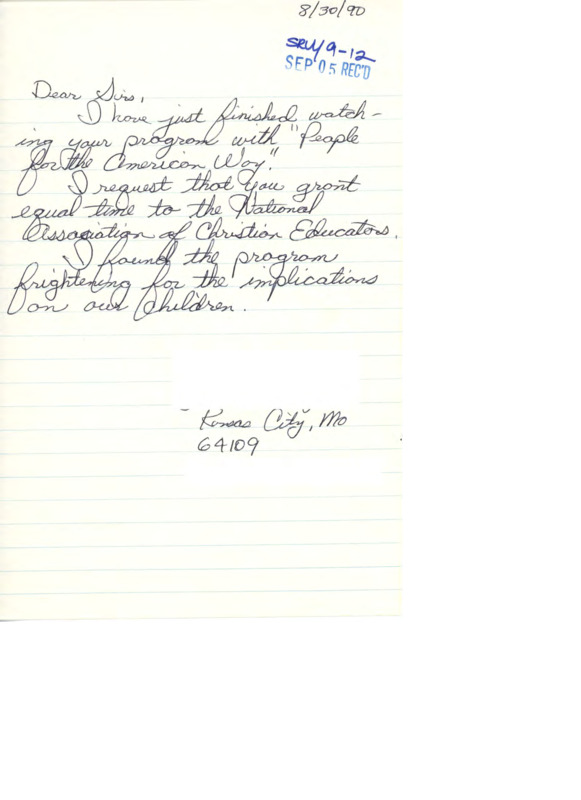 8/30/90
SRW 9-12
SEP 05 REC'D
Dear Sirs,
I have just finished watch-
ing your program with "People
for the American Way."
I request that you grant
equal time to the National
Association of Christian Educators.
I found the program
frightening for the implications
on our Children.
Kansas City, Mo
64109